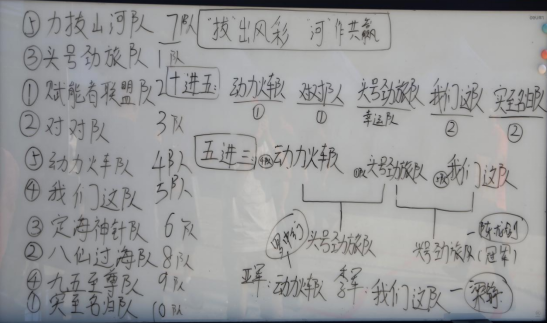 ⑤力拔山河队 7队
"拔"出风彩 "河"作共赢
③头号劲旅队 1队
①赋能者联盟队 2
十进五:
动力火车队 ①
对对队 ①
头号劲旅队 幸运队
我们这队 ②
实至名归队 ②
②对对队 3队
⑤动力火车队 4队
④我们这队 5队
五进三:
动力火车队
头号劲旅队
我们这队
③定海神针队 6队
头号劲旅队
头号劲旅队(冠军)
②八仙过海队 8队
④九五至尊队 9队
亚军:动力火车队
季军:我们这队
①实至名归队 10队